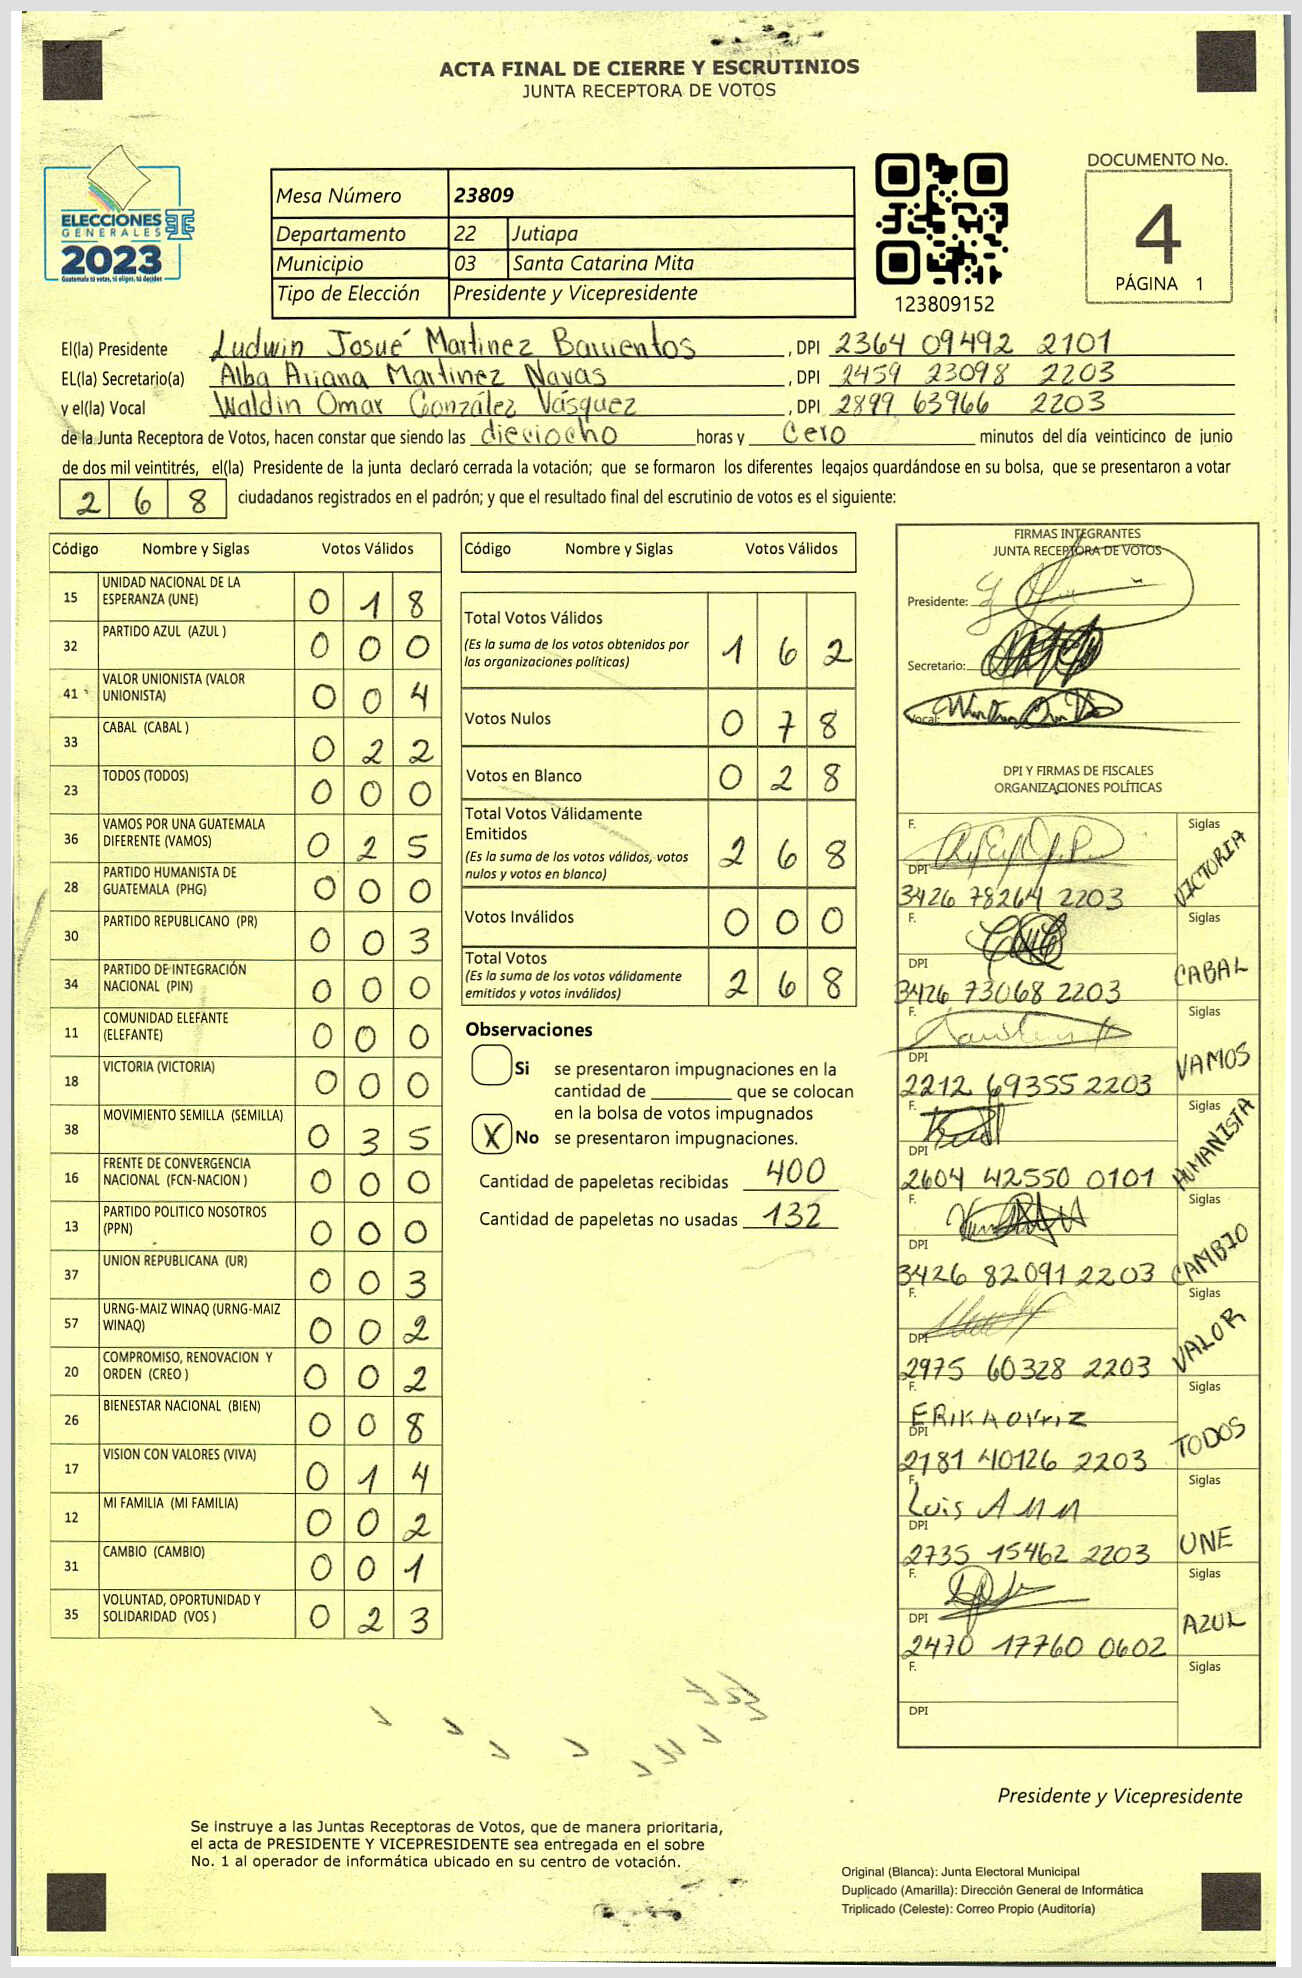 ACTA FINAL DE CIERRE Y ESCRUTINIOS
JUNTA RECEPTORA DE VOTOS
ELECCIONES
GENERALES
2023
Guatemala tú votas, tú eliges, tú decides
Mesa Número 23809
Departamento 22 Jutiapa
Municipio 03 Santa Catarina Mita
Tipo de Elección Presidente y Vicepresidente
123809152
DOCUMENTO No.
4
PÁGINA 1
El(la) Presidente Ludwin Josué Martinez Barrientos , DPI 2364 09492 2101
EL(la) Secretario(a) Alba Ariana Martinez Navas , DPI 2459 23098 2203
y el(la) Vocal Waldin Omar González Vásquez , DPI 2899 63966 2203
de la Junta Receptora de Votos, hacen constar que siendo las dieciocho horas y Cero minutos del día veinticinco de junio
de dos mil veintitrés, el(la) Presidente de la junta declaró cerrada la votación; que se formaron los diferentes legajos guardándose en su bolsa, que se presentaron a votar
2 6 8 ciudadanos registrados en el padrón; y que el resultado final del escrutinio de votos es el siguiente:
Código Nombre y Siglas Votos Válidos
15 UNIDAD NACIONAL DE LA ESPERANZA (UNE) 0 1 8
32 PARTIDO AZUL (AZUL ) 0 0 0
41 VALOR UNIONISTA (VALOR UNIONISTA) 0 0 4
33 CABAL (CABAL ) 0 2 2
23 TODOS (TODOS) 0 0 0
36 VAMOS POR UNA GUATEMALA DIFERENTE (VAMOS) 0 2 5
28 PARTIDO HUMANISTA DE GUATEMALA (PHG) 0 0 0
30 PARTIDO REPUBLICANO (PR) 0 0 3
34 PARTIDO DE INTEGRACIÓN NACIONAL (PIN) 0 0 0
11 COMUNIDAD ELEFANTE (ELEFANTE) 0 0 0
18 VICTORIA (VICTORIA) 0 0 0
38 MOVIMIENTO SEMILLA (SEMILLA) 0 3 5
16 FRENTE DE CONVERGENCIA NACIONAL (FCN-NACION ) 0 0 0
13 PARTIDO POLITICO NOSOTROS (PPN) 0 0 0
37 UNION REPUBLICANA (UR) 0 0 3
57 URNG-MAIZ WINAQ (URNG-MAIZ WINAQ) 0 0 2
20 COMPROMISO, RENOVACION Y ORDEN (CREO ) 0 0 2
26 BIENESTAR NACIONAL (BIEN) 0 0 8
17 VISION CON VALORES (VIVA) 0 1 4
12 MI FAMILIA (MI FAMILIA) 0 0 2
31 CAMBIO (CAMBIO) 0 0 1
35 VOLUNTAD, OPORTUNIDAD Y SOLIDARIDAD (VOS ) 0 2 3
Código Nombre y Siglas Votos Válidos
Total Votos Válidos 1 6 2
(Es la suma de los votos obtenidos por
las organizaciones políticas)
Votos Nulos 0 7 8
Votos en Blanco 0 2 8
Total Votos Válidamente
Emitidos 2 6 8
(Es la suma de los votos válidos, votos
nulos y votos en blanco)
Votos Inválidos 0 0 0
Total Votos 2 6 8
(Es la suma de los votos válidamente
emitidos y votos inválidos)
Observaciones
Si se presentaron impugnaciones en la
cantidad de ________ que se colocan
en la bolsa de votos impugnados
X No se presentaron impugnaciones.
Cantidad de papeletas recibidas 400
Cantidad de papeletas no usadas 132
FIRMAS INTEGRANTES
JUNTA RECEPTORA DE VOTOS
Presidente:
Secretario:
Vocal:
DPI Y FIRMAS DE FISCALES
ORGANIZACIONES POLÍTICAS
F. Siglas
DPI VICTORIA
3426 78264 2203
F. Siglas
DPI CABAL
3426 73068 2203
F. Siglas
DPI VAMOS
2212 69355 2203
F. Siglas
DPI HUMANISTA
2604 42550 0101
F. Siglas
DPI CAMBIO
3426 82091 2203
F. Siglas
DPI VALOR
2975 60328 2203
F. Siglas
ERIKA
DPI TODOS
2181 40126 2203
F. Siglas
Luis
DPI UNE
2735 15462 2203
F. Siglas
DPI AZUL
2470 17760 0602
F. Siglas
DPI
Presidente y Vicepresidente
Se instruye a las Juntas Receptoras de Votos, que de manera prioritaria,
el acta de PRESIDENTE Y VICEPRESIDENTE sea entregada en el sobre
No. 1 al operador de informática ubicado en su centro de votación.
Original (Blanca): Junta Electoral Municipal
Duplicado (Amarilla): Dirección General de Informática
Triplicado (Celeste): Correo Propio (Auditoría)